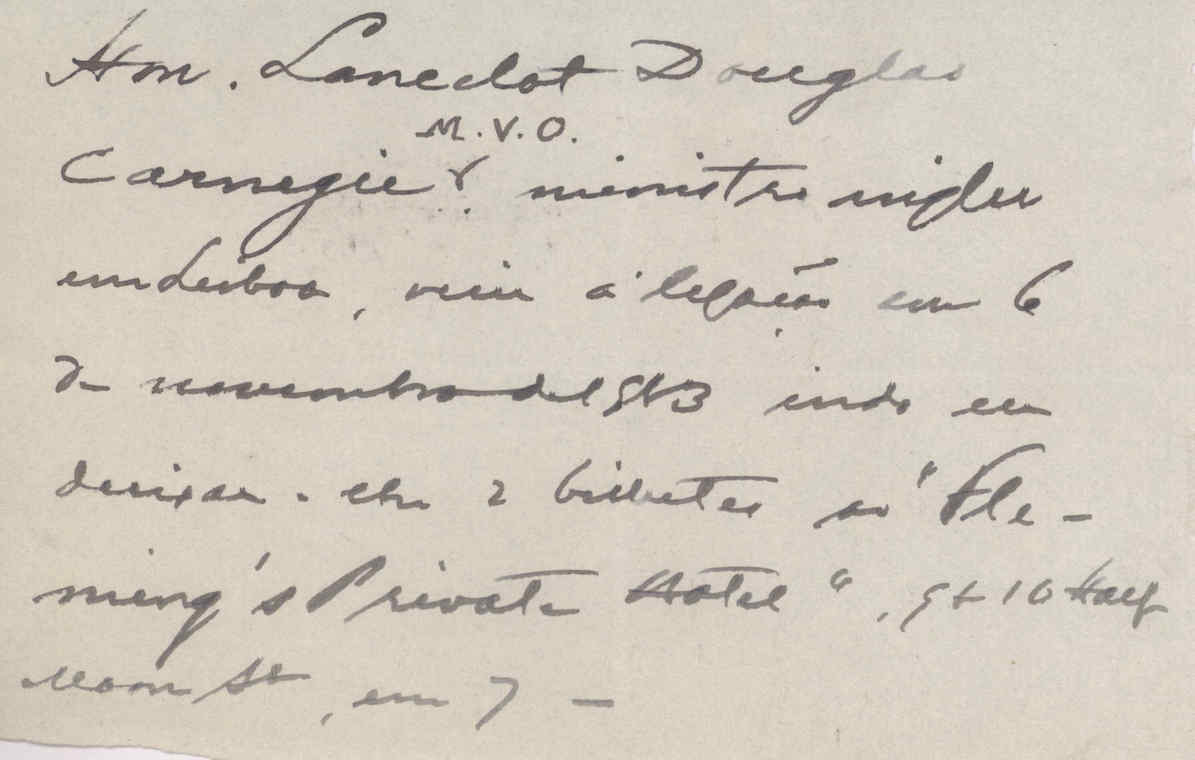 Hon. Lancelot Douglas
M.V.O.
Carnegie, ministro inglez
em Lisboa, veiu á legação em 6
de novembro de 1913 indo eu
deixar-lhe 2 bilhetes no "Fle-
ming's Private Hotel", 9 & 10 Half
Moon St, em 7 –